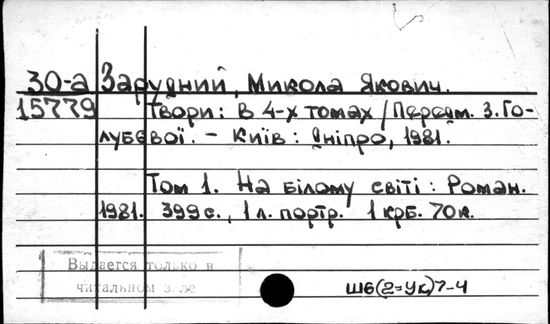 30-а Зарудний, Микола Якович.
15779 Твори: В 4-х томах / Передм. З. Го-
лубєвої. - Київ : Дніпро, 1981.
Том 1. На білому світі : Роман.
1981. 399 с., 1 л. портр. 1 крб. 70 к.
Выдается только в
читальном з ле
Ш6(2=Ук)7-4